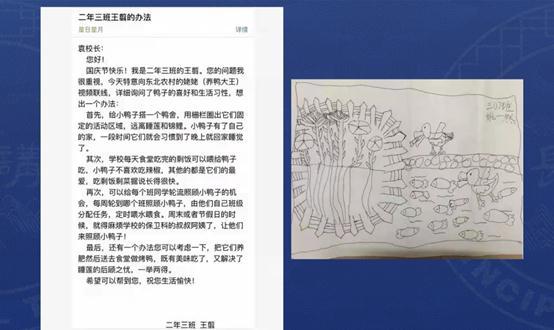 二年三班王翦的办法
星日星月 详情
袁校长:
您好!
国庆节快乐!我是二年三班的王翦。您的问题我
很重视,今天特意向东北农村的姥姥(养鸭大王)
视频联线,详细询问了鸭子的喜好和生活习性,想
出一个办法:
首先,给小鸭子搭一个鸭舍,用栅栏圈出它们固
定的活动区域,远离睡莲和锦鲤。小鸭子有了自己
的家,一段时间它们就会习惯到了晚上就回家睡觉
了。
其次,学校每天食堂吃完的剩饭可以喂给鸭子
吃,小鸭子不喜欢吃辣椒,其他的都是它们的最
爱,吃剩饭剩菜据说长得很快。
再次,可以给每个班同学轮流照顾小鸭子的机
会,每周轮到哪个班照顾小鸭子,由他们自己班级
分配任务,定时喂水喂食。周末或者节假日的时
候,就得麻烦学校的保卫科的叔叔阿姨了,让他们
来照顾小鸭子!
最后,还有一个办法您可以考虑一下,把它们养
肥然后送去食堂做烤鸭,既有美味吃了,又解决了
睡莲的后顾之忧,一举两得。
希望可以帮到您,祝您生活愉快!
二年三班 王翦